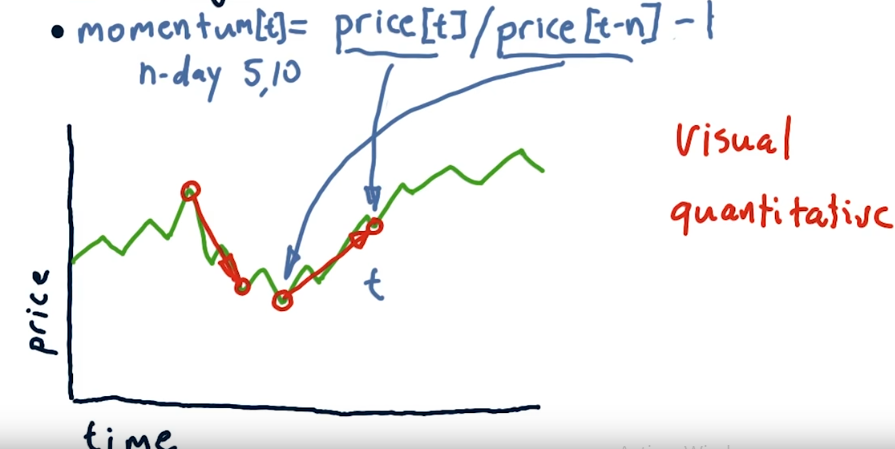 • momentum[t]= price[t]/price[t-n]-1
n-day 5,10
visual
quantitative
t
price
time